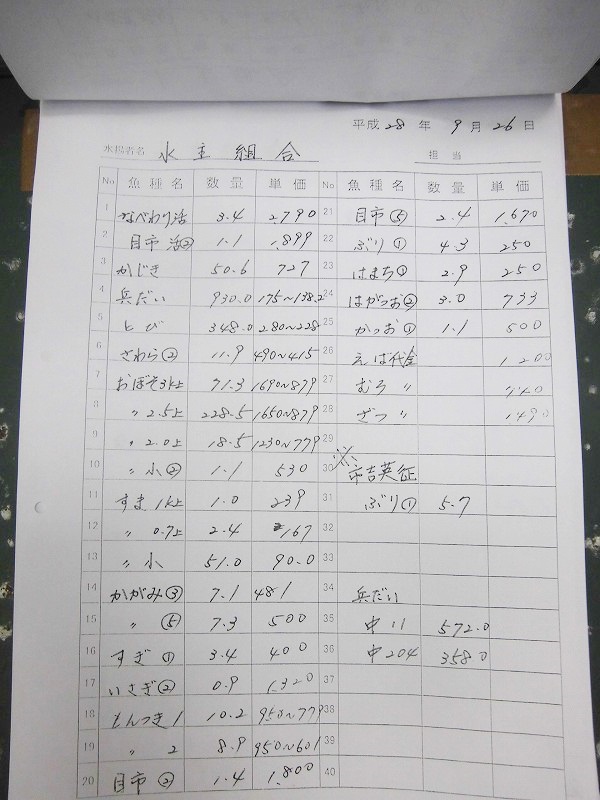 平成 28 年 9 月 26 日
水揚者名 水主組合 担当
No 魚種名 数量 単価 No 魚種名 数量 単価
1 なべわり活 3.4 2,790 21 目市⑤ 2.4 1,670
2 目市活② 1.1 1,899 22 ぶり① 4.3 250
3 かじき 50.6 727 23 はまち① 2.9 250
4 兵だい 930.0 175〜138.2 24 はがつお② 3.0 733
5 とび 348.0 280〜228 25 かつお① 1.1 500
6 さわら② 11.9 490〜415 26 えば代金 1200
7 おぼそ3k上 71.3 1690〜879 27 むろ 〃
8 〃 2.5上 228.5 1650〜879 28 ざつ 〃 1490
9 〃 2.0上 18.5 1230〜779 29
10 〃 小② 1.1 530 30 ※市吉英征
11 すま 1k上 1.0 239 31 ぶり① 5.7
12 〃 0.7上 2.4 167 32
13 〃 小 51.0 90.0 33
14 かがみ③ 7.1 481 34 兵だい
15 〃 ⑤ 7.3 500 35 中11 572.0
16 すぎ① 3.4 400 36 中204 358.0
17 いさぎ② 0.9 1,320 37
18 もんつき1 10.2 950〜779 38
19 〃 2 8.9 950〜601 39
20 目市② 1.4 1,800 40